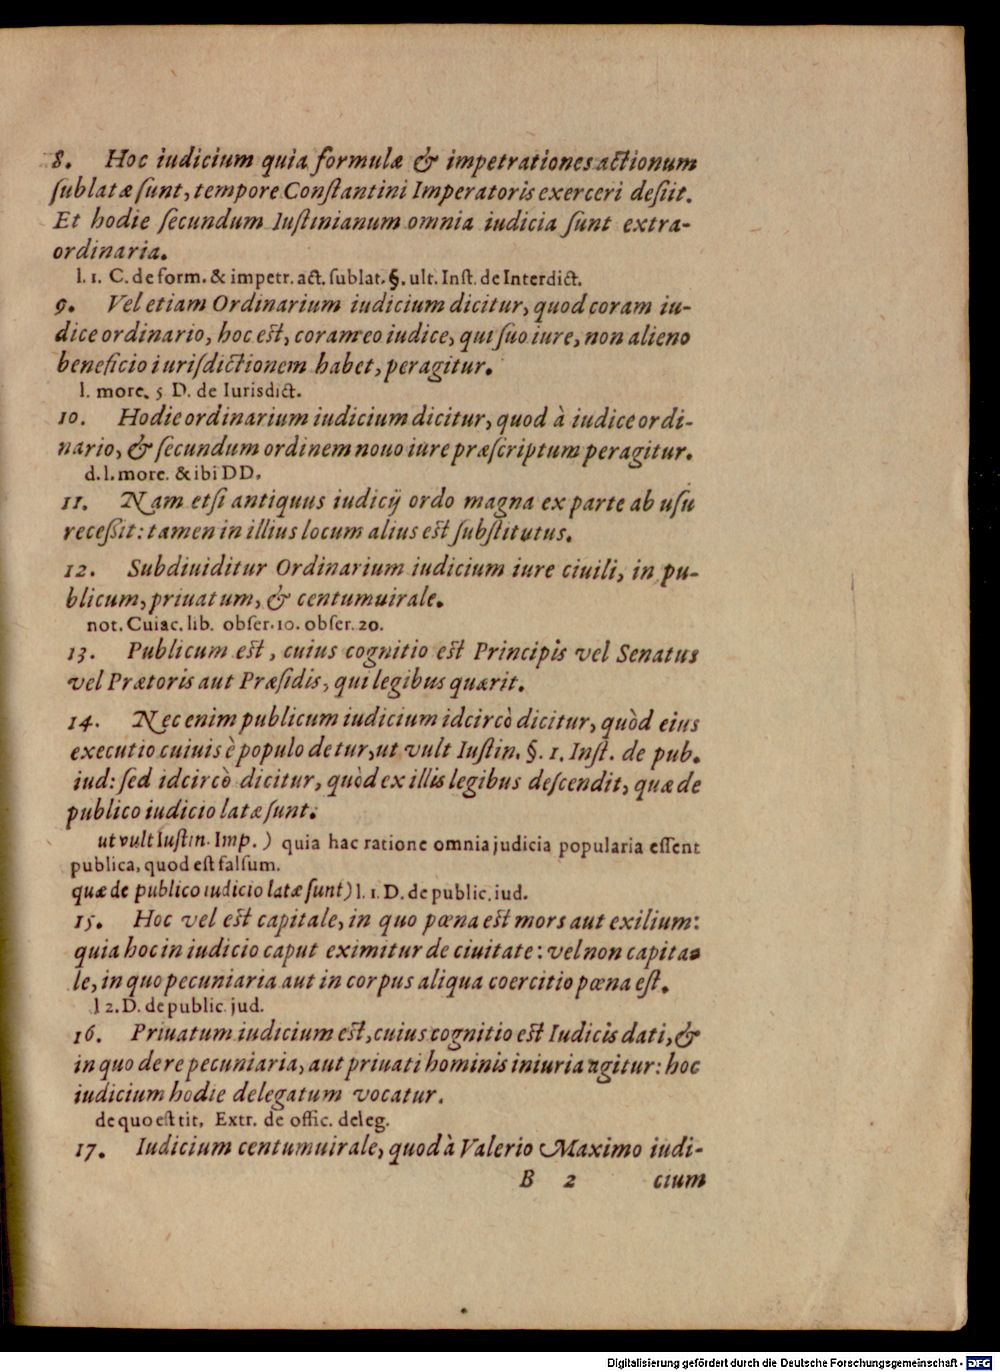 8. Hoc iudicium quia formulæ & impetrationes actionum
ſublatæ ſunt, tempore Conſtantini Imperatoris exerceri deſiit.
Et hodie ſecundum Iuſtinianum omnia iudicia ſunt extra-
ordinaria.
l. 1. C. de form. & impetr. act. ſublat. §. ult. Inſt. de Interdict.
9. Vel etiam Ordinarium iudicium dicitur, quod coram iu-
dice ordinario, hoc est, coram eo iudice, qui ſuo iure, non alieno
beneficio iuriſdictionem habet, peragitur.
l. more. 5 D. de Iurisdict.
10. Hodie ordinarium iudicium dicitur, quod à iudice ordi-
nario, & ſecundum ordinem nouo iure præſcriptum peragitur.
d. l. more. & ibi DD.
11. Nam etſi antiquus iudicij ordo magna ex parte ab uſu
receßit: tamen in illius locum alius est ſubſtitutus.
12. Subdiuiditur Ordinarium iudicium iure ciuili, in pu-
blicum, priuatum, & centumuirale.
not. Cuiac. lib. obſer. 10. obſer. 20.
13. Publicum est, cuius cognitio est Principis vel Senatus
vel Prætoris aut Præſidis, qui legibus quærit.
14. Nec enim publicum iudicium idcircò dicitur, quòd eius
executio cuiuis è populo detur, ut vult Iuſtin. §. 1. Inſt. de pub.
iud: ſed idcircò dicitur, quòd ex illis legibus deſcendit, quæ de
publico iudicio latæ ſunt.
ut vult Iuſtin. Imp. ) quia hac ratione omnia judicia popularia eſſent
publica, quod eſt falſum.
quæ de publico iudicio latæ ſunt) l. 1. D. de public. iud.
15. Hoc vel est capitale, in quo pœna est mors aut exilium:
quia hoc in iudicio caput eximitur de ciuitate: vel non capita-
le, in quo pecuniaria aut in corpus aliqua coercitio pœna eſt.
l 2. D. de public. jud.
16. Priuatum iudicium est, cuius cognitio est Iudicis dati, &
in quo de re pecuniaria, aut priuati hominis iniuria agitur: hoc
iudicium hodie delegatum vocatur.
de quo est tit. Extr. de offic. deleg.
17. Iudicium centumuirale, quod à Valerio Maximo iudi-
B 2 cium
Digitalisierung gefördert durch die Deutsche Forschungsgemeinschaft - DFG